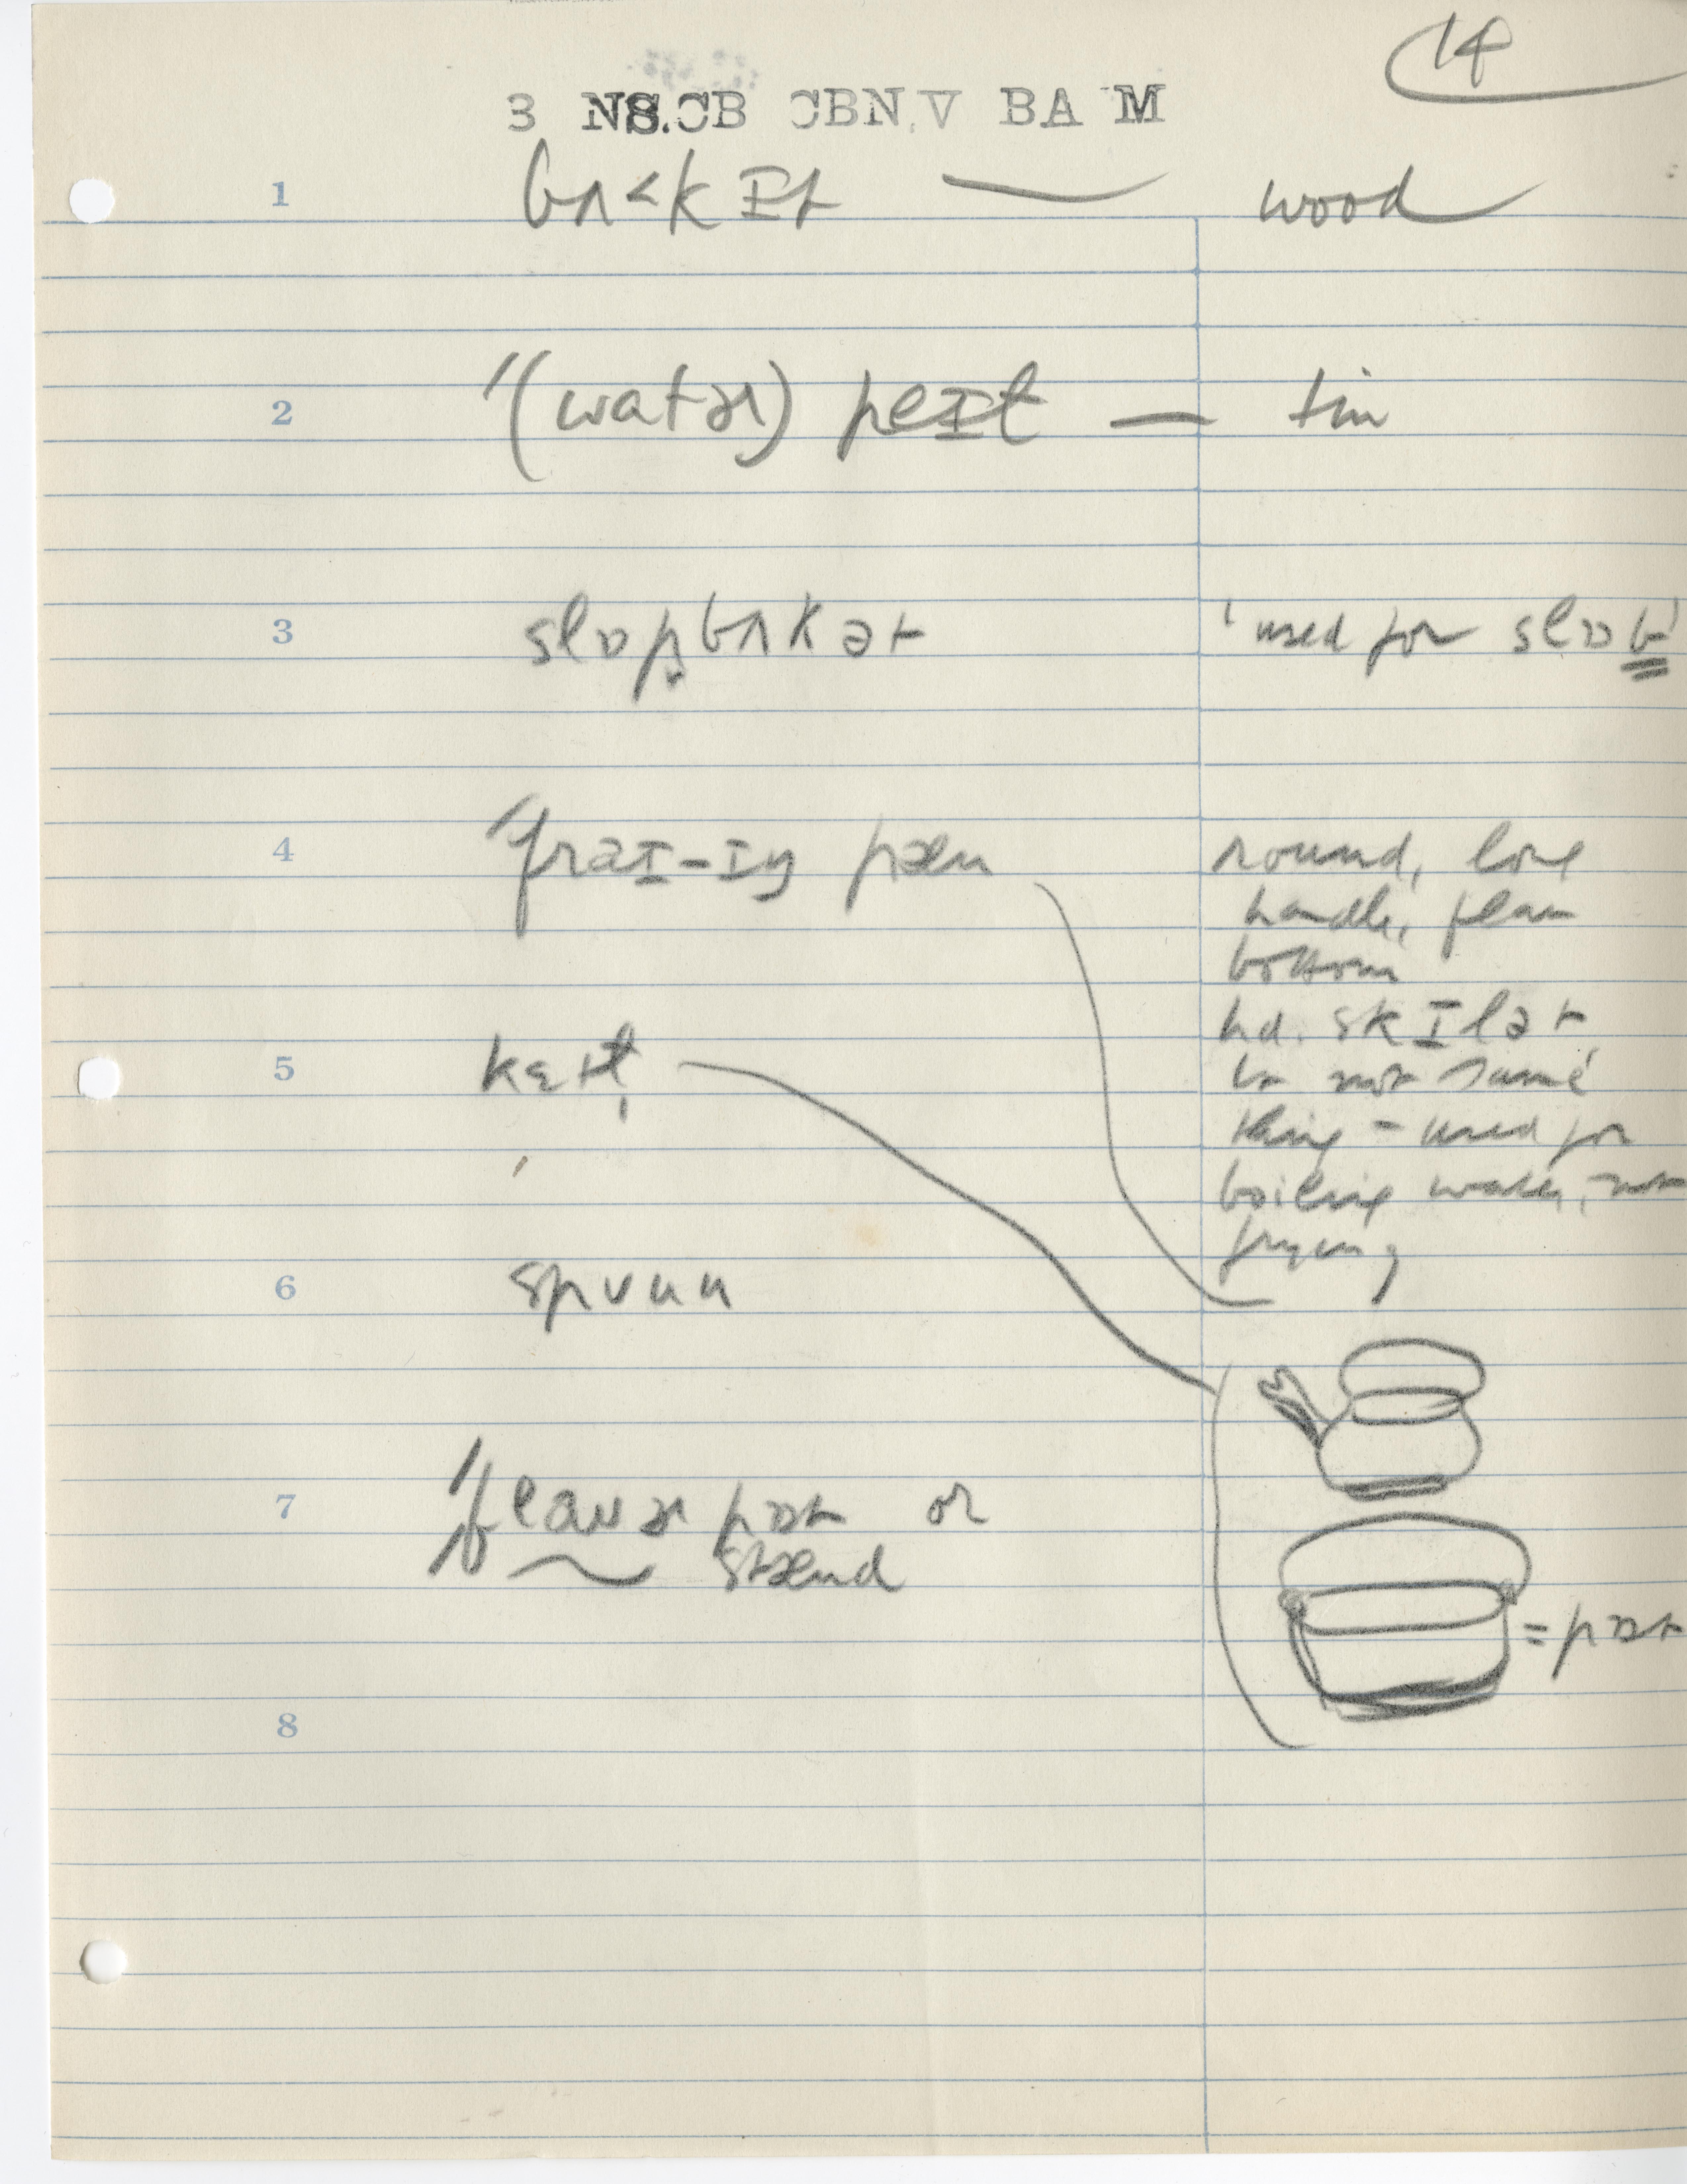 14
3 NS.CB CBN.V BA M
1 bʌ<kɪt — wood
2 ′(watɚ) peɪt — tin
3 slɒpbʌkət 'used for slɒb'
4 ′fraɪ-ɪŋ pæn round, long
handle, plain
bottom
hd. skɪlət
5 kɛtl̩ but not same
thing - used for
boiling water, not
frying
6 spuun
7 flauɚ pɒt or
stænd
= pɒt
8